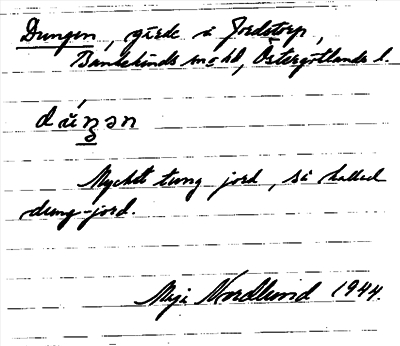 Dungen, gärde i Fredstorp,
Bankekinds sn o hd, Östergötlands l.
dúŋən
Mycket tung jord, så kallad
dung-jord.
Maja Nordlund 1944.